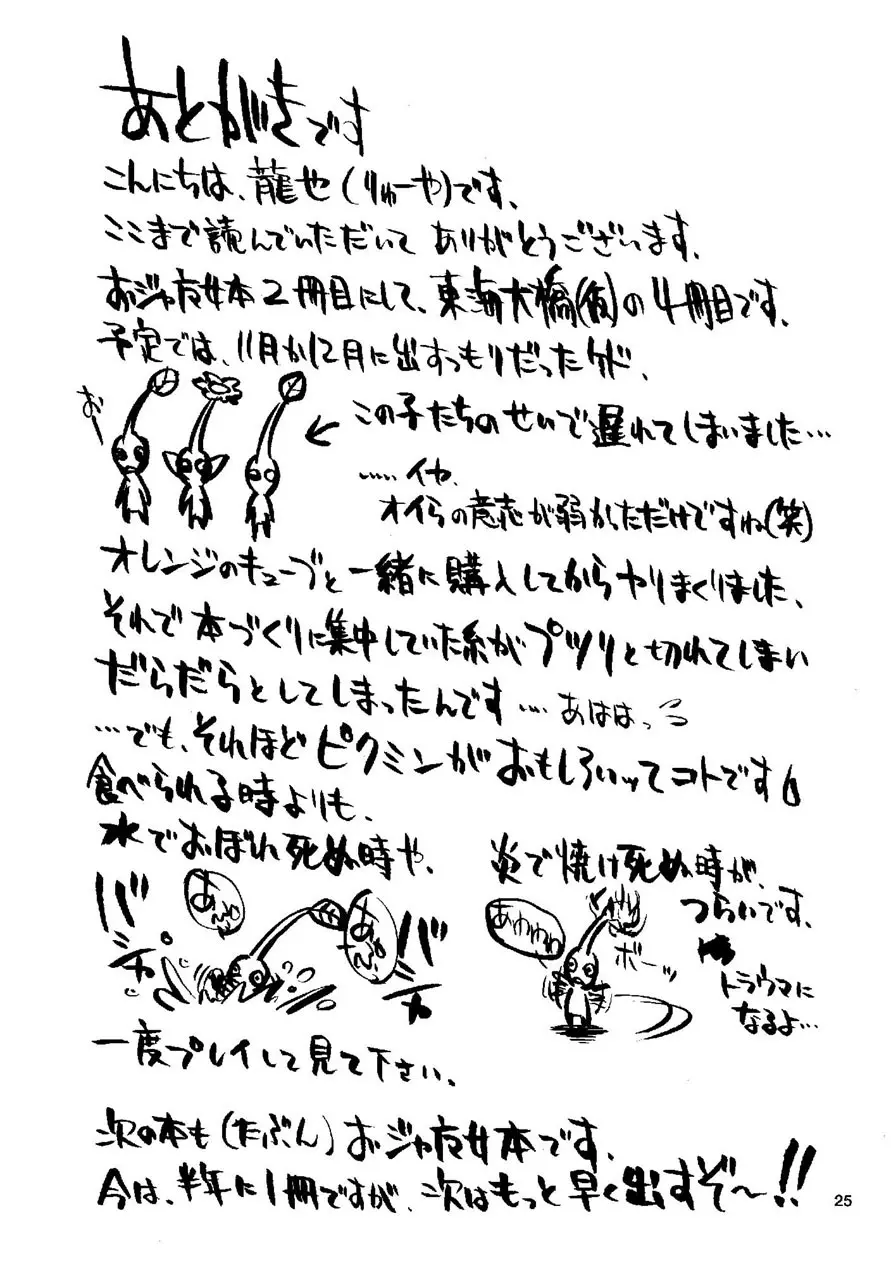 あとがきです
こんにちは、龍也(りゅーや)です、
ここまで読んでいただいて ありがとうございます、
おジャ魔女本2冊目にして、東海大橋(仮)の4冊目です、
予定では、11月か12月に出すつもりだったケド、
おー
← この子たちのせいで遅れてしまいました…
……イヤ、
オイらの意志が弱かっただけですね(笑)
オレンジのキューブと一緒に購入してからやりまくりました、
それで本づくりに集中していた糸がプツリと切れてしまい
だらだらとしてしまったんです…. あははっ
…でも、それほどピクミンがおもしろいッてコトです
食べられる時よりも、
水でおぼれ死ぬ時や、
炎で焼け死ぬ時が、
つらいです、
トラウマに
なるよ…
バシャ
あ〜ぷ
あ〜ぷ
バシャ
あわわわ
ボーッ
一度プレイして見て下さい、
次の本も(たぶん)おジャ魔女本です、
今は、半年に1冊ですが、次はもっと早く出すぞ〜!!
25